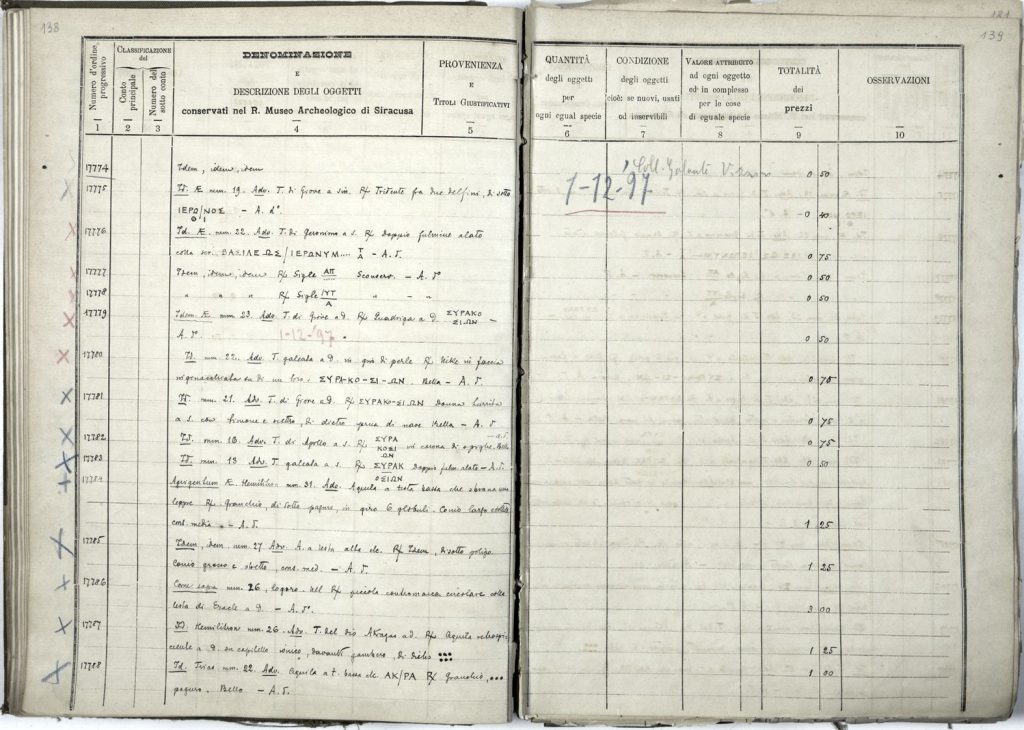 138
Numero d'ordine progressivo
CLASSIFICAZIONE del
Conto principale
Numero del sotto conto
DENOMINAZIONE
E
DESCRIZIONE DEGLI OGGETTI
conservati nel R. Museo Archeologico di Siracusa
PROVENIENZA
E
TITOLI GIUSTIFICATIVI
1 2 3 4 5
17774 Idem, idem, idem
17775 Id. Æ mm. 19. Adv. T. di Giove a sin. Rx Tridente fra due delfini, di sotto
ΙΕΡΩΝΟΣ — A. d°.
17776 Id. Æ. mm. 22. Adv. T. di Geronimo a s. Rx Doppio fulmine alato
colla scr. ΒΑΣΙΛΕΩΣ/ΙΕΡΩΝΥΜ — A. d.
17777 Idem, idem, idem Rx Sigle — A. d°
17778 " " " Rx Sigle " — "
17779 Idem. Æ. mm. 23. Adv. T. di Giove a d. Rx Quadriga a d. ΣΥΡΑΚΟ
ΣΙΩΝ —
A. d°. 1-12-'97.
17780 Id. mm. 22. Adv. T. galeata a d. in giro di perle Rx Nike in faccia
ΣΥΡΑ-ΚΟ-ΣΙ-ΩΝ. Bella — A. d.
17781 Id. mm. 21. Adv. T. di Giove a d. Rx ΣΥΡΑΚΟ-ΣΙΩΝ Donna turrita
a s. con timone e scettro, di dietro prua di nave Bella — A. d
17782 Id. mm. 16. Adv. T. di Apollo a s. Rx ΣΥΡΑ
ΚΟΣΙ
ΩΝ
— A. d.
17783 Id. mm. 13 Adv. T. galeata a s. Rx ΣΥΡΑΚ
ΟΣΙΩΝ
Doppio fulm. alato — A. d.
17784 Agrigentum Æ. Hemilitron mm. 31. Adv. Aquila a testa bassa che sbrana una
lepre Rx Granchio, di sotto paguro, in giro 6 globuli. Conio largo
cons. media — A. d.
17785 Idem, idem mm. 27 Adv. A. a testa alta etc. Rx Idem, di sotto polipo
Conio grosso e stretto, cons. med. — A. d.
17786 Come sopra mm. 26, logoro. Nel Rx piccola contromarca circolare colla
testa di Eracle a d. — A. d°.
17787 Id. Hemilitron mm. 26. Adv. T. del dio Akragas a d. Rx Aquila
a d. su capitello ionico, davanti gambero, di dietro
17788 Id. Trias mm. 22. Adv. Aquila a t. bassa etc. ΑΚ/ΡΑ Rx Granchio,
paguro. Bello — A. d.
139
QUANTITÀ
degli oggetti
per
ogni egual specie
CONDIZIONE
degli oggetti
cioè: se nuovi, usati
od inservibili
VALORE ATTRIBUITO
ad ogni oggetto
ed in complesso
per le cose
di eguale specie
TOTALITÀ
dei
prezzi
OSSERVAZIONI
6 7 8 9 10
1-12-'97
Coll.
0 50
0 40
0 75
0 50
0 50
0 50
0 75
0 75
0 75
0 50
1 25
1 25
3 00
1 25
1 00